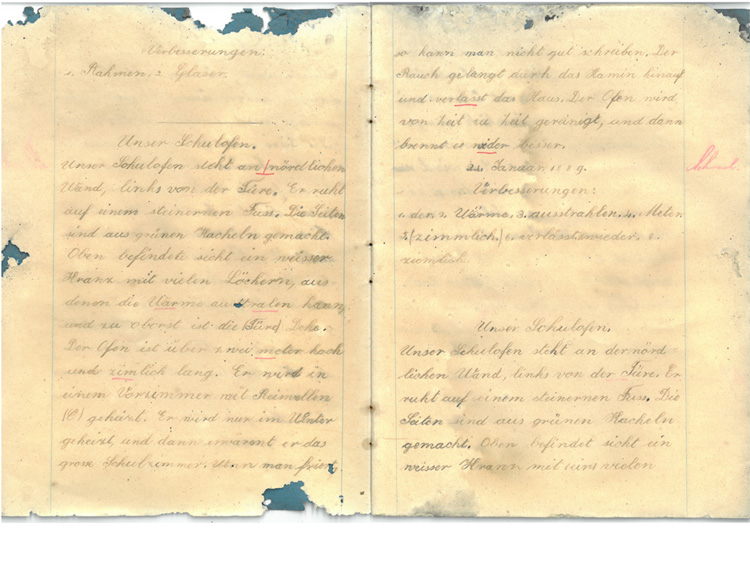 Verbesserungen:
1. Rahmen. 2. Gläser.
Unser Schulofen.
Unser Schulofen steht an nördlichen
Wand, links von der Türe. Er ruht
auf einem steinernen Fuss. Die Seiten
sind aus grünen Kacheln gemacht.
Oben befindets sicht ein weisser
Kranz mit vielen Löchern, aus
denen die Uarme australen kann,
und zu oberst ist die (Türe) Deke.
Der Ofen ist über zwei meter hoch
und zimlich lang. Er wird in
einem Vorzimmer mit Reiswellen
geheizt. Er wird nur im Winter
geheizt, und dann erwärmt er das
grosse Schulzimmer. Wenn man friert,
so kann man nicht gut schreiben. Der
Rauch gelangt durch das Kamin hinauf
und verlasst das Haus. Der Ofen wird,
von Zeit zu Zeit geränigt, und dann
brennt er wider besser.
Januar
Verbesserungen:
1. der. 2. Wärme. 3. ausstrahlen. 4. Meter.
5. (zimmlich.) 6. verlässt. wieder.
ziemlich.
Unser Schulofen.
Unser Schulofen steht an der nörd
lichen Wand, links von der Türe. Er
ruht auf einem steinernen Fuss. Die
Seiten sind aus grünen Kacheln
gemacht. Oben befindet sicht ein
weisser Kranz mit vielen